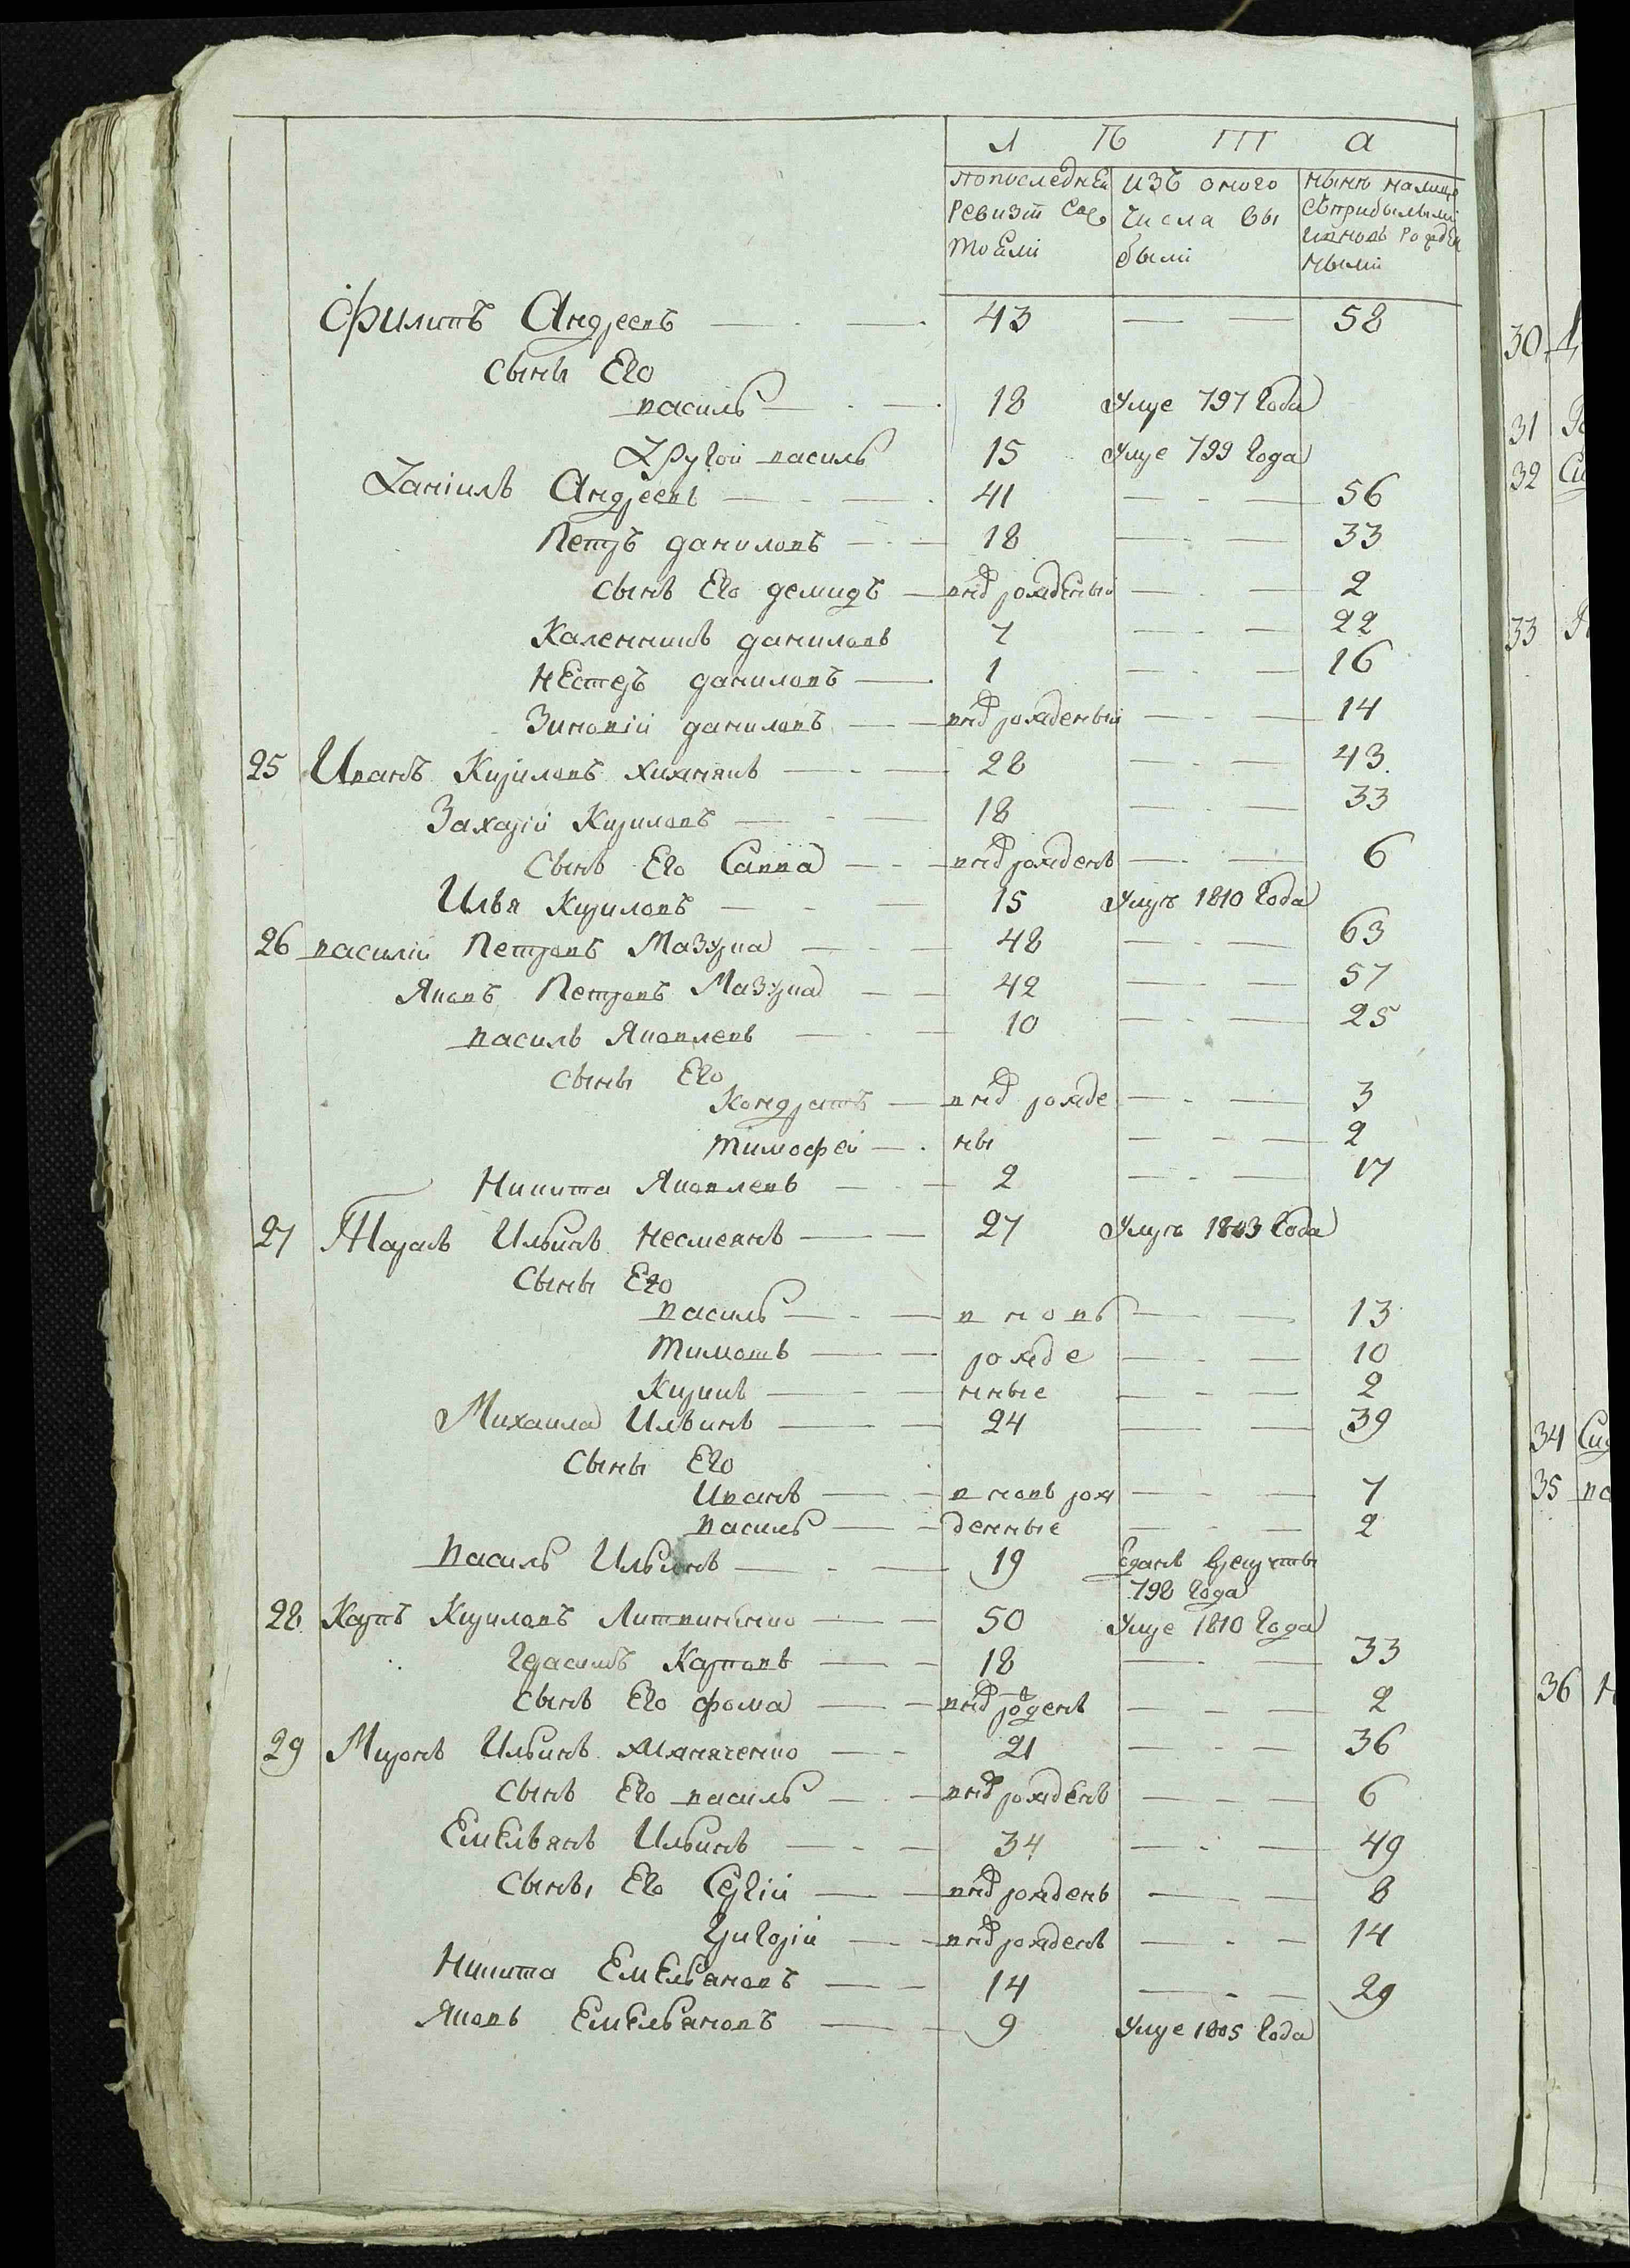 Л ѣ т а
по последней изъ оного нынѣ налицо
Ревизіи Сос числа вы съприбылыми
тояли были ивновь рожден
ными
Филипъ Андреевъ 43 58
Сыны Его
василь 18 Умре 797 Года
Другой василь 15 Умре 799 Года
Даніилъ Андреевъ 41 56
Петръ даниловъ 18 33
Сынъ Его демидъ внв рожденый 2
Каленникъ даниловъ 7 22
нЕстеръ даниловъ 1 16
Зиновій даниловъ внв рожденый 14
25 Иванъ Кириловъ Хижнякъ 28 43
Захарій Кириловъ 18 33
Сынъ Его Савва внв рожденъ 6
Илья Кириловъ 15 Умръ 1810 Года
26 василій Петровъ Мазурка 48 63
Яковъ Петровъ Мазурка 42 57
василь Яковлевъ 10 25
Сыны Его
Кондратъ внв рожде 3
тимофей ны 2
Никита Яковлевъ 2 17
27 Тарасъ Ильинъ Несмеянъ 27 Умръ 1803 Года
Сыны Его
василь в новь 13
Тимошъ рожде 10
Кирикъ нные 2
Михаила Ильинъ 24 39
Сыны Его
Иванъ в новь рож 7
василь денные 2
василь Ильинъ 19 Сданъ врекруты
798 Года
28 Карпъ Кириловъ Литвиненко 50 Умре 1810 Года
Герасимъ Карповъ 18 33
Сынъ Его фома внв роденъ 2
29 Миронъ Ильинъ 21 36
Сынъ Его василь внв рожденъ 6
Емельянъ Ильинъ 34 49
Сыны Его Сергій внв рожденъ 8
Григорій внв рожденъ 14
Никита Емельяновъ 14 29
Яковъ Емельяновъ 9 Умре 1805 Года
30
31
32
33
34
35
36